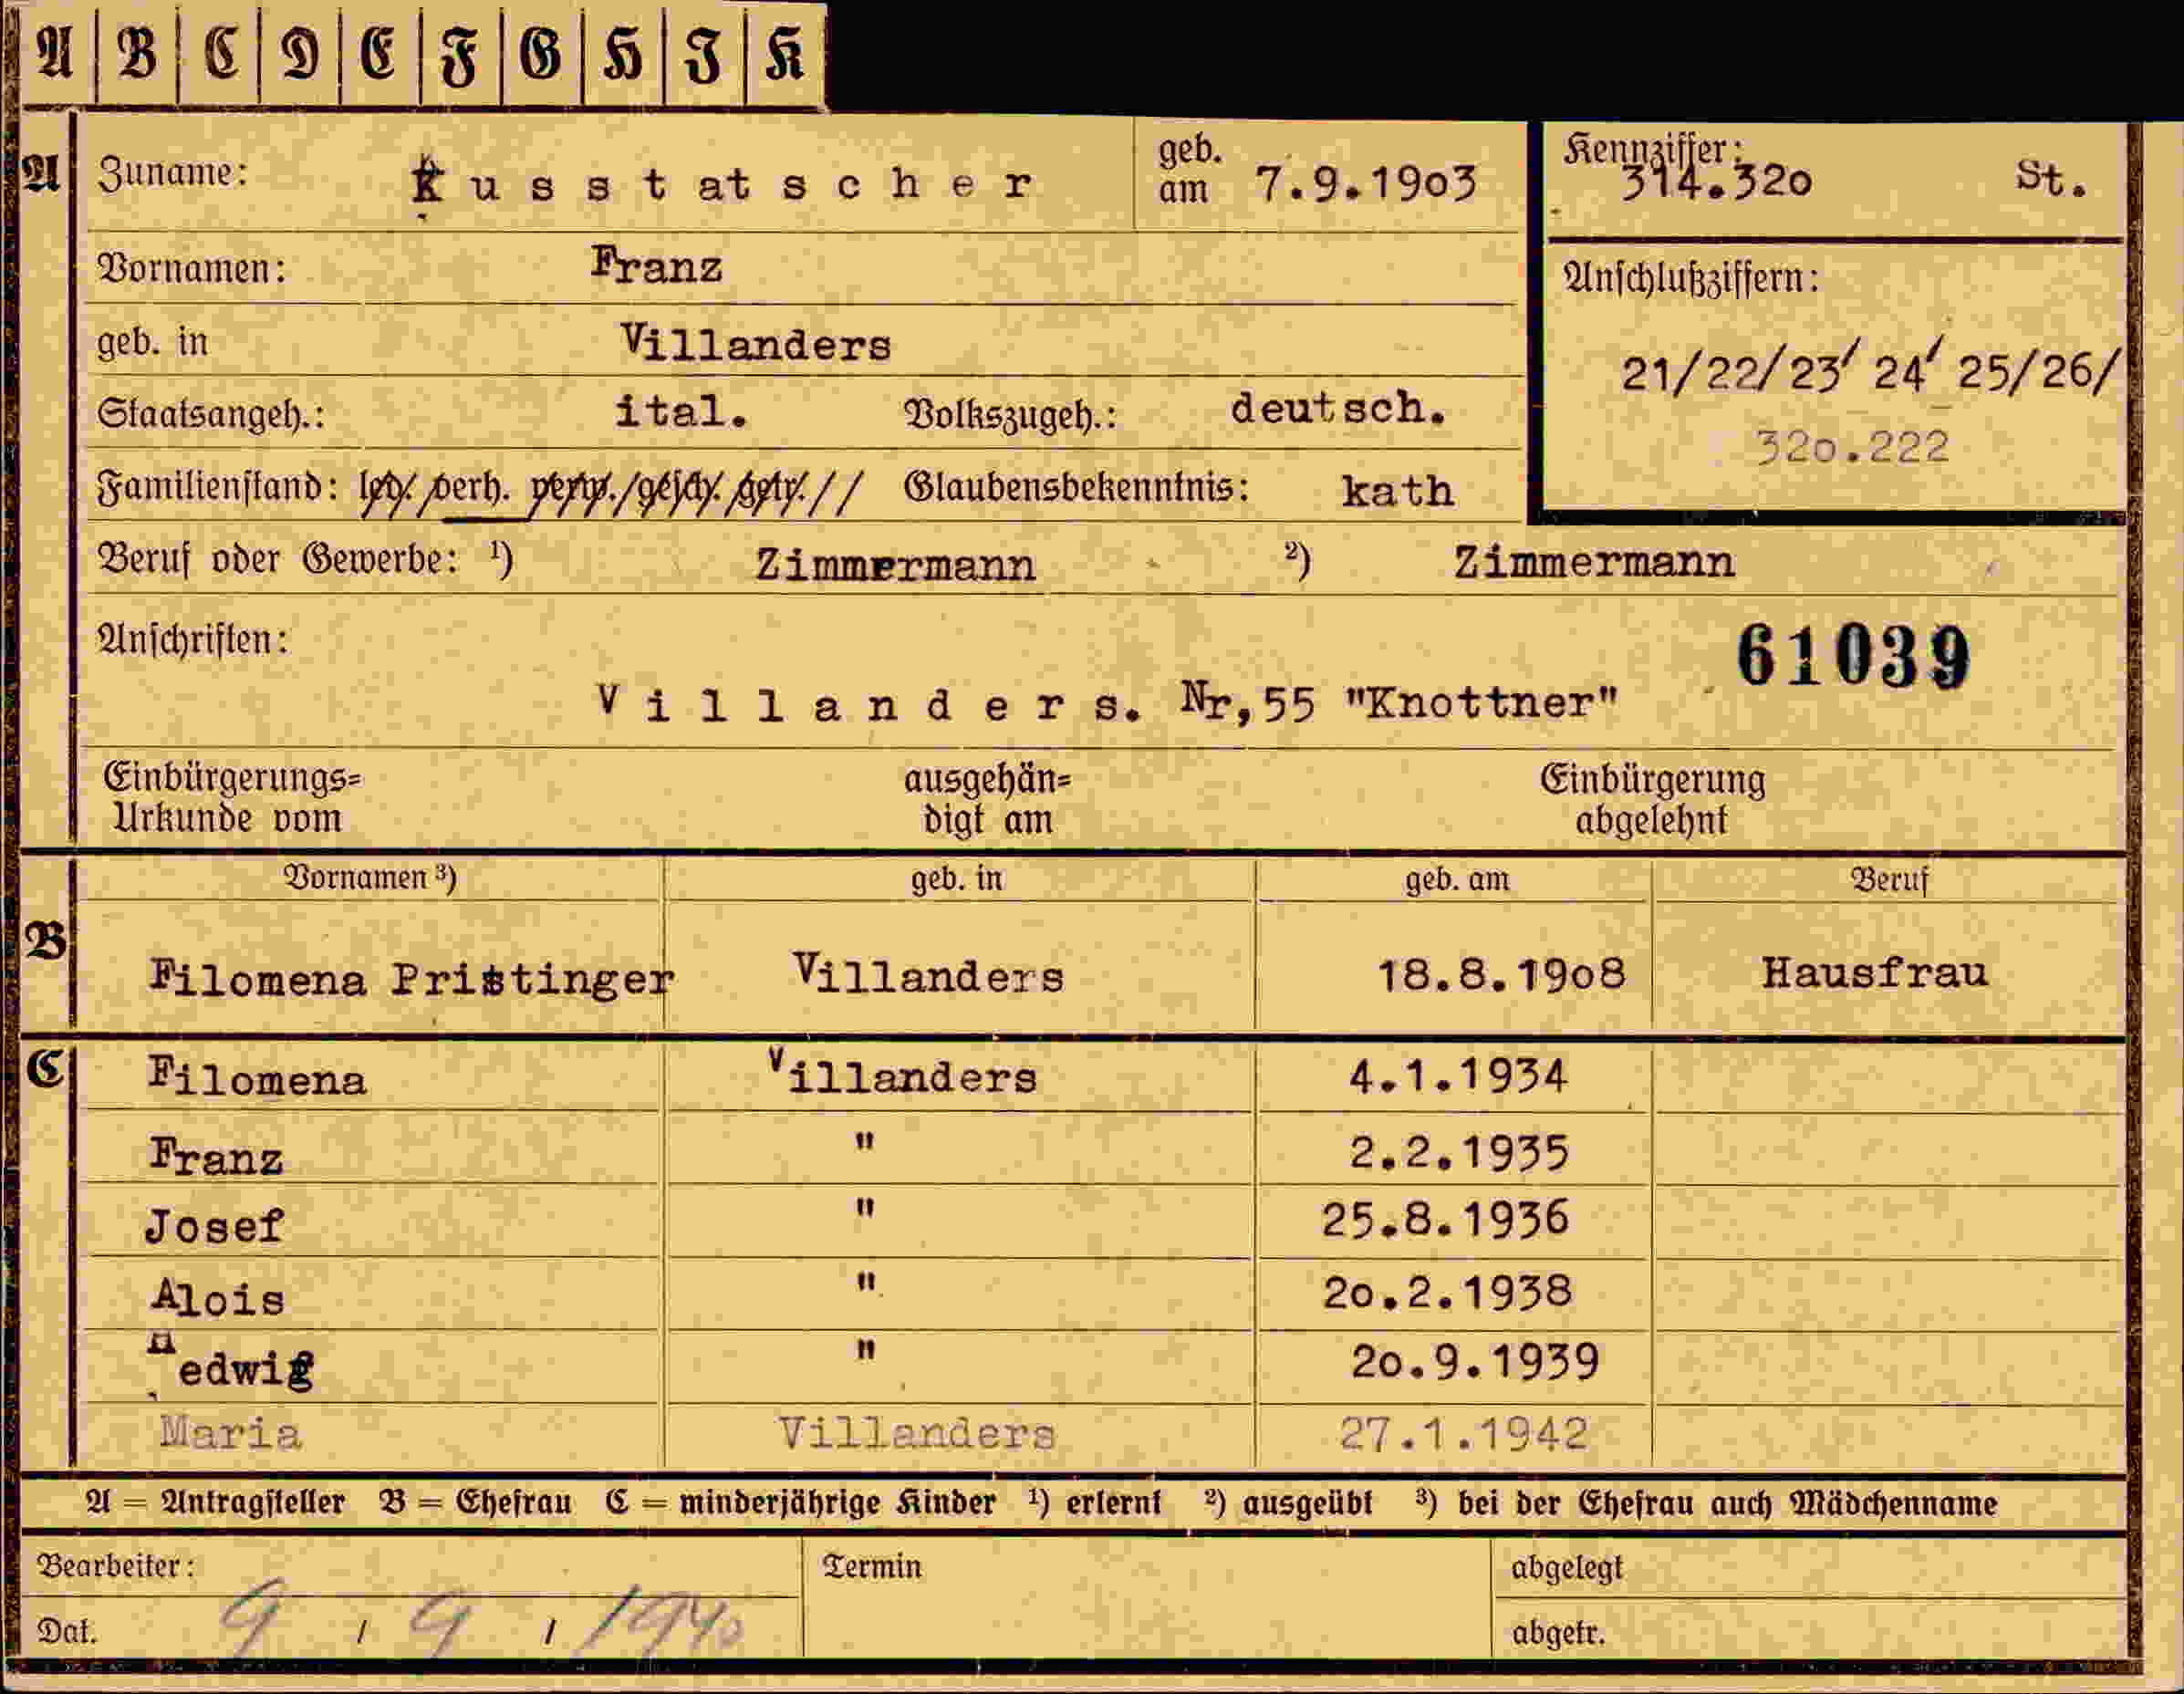 A B C D E F G H I K
A Zuname: Kusstatscher geb. am 7.9.1903 Kennziffer: 314.320 St.
Vornamen: Franz
Anschlußziffern:
geb. in Villanders
21/22/23/ 24/ 25/26/
Staatsangeh.: ital. Volkszugeh.: deutsch.
320.222
Familienstand: led./verh. verw./gesch./getr.// Glaubensbekenntnis: kath
Beruf oder Gewerbe: ¹) Zimmermann ²) Zimmermann
Anschriften: 61039
Villanders. Nr,55 "Knottner"
Einbürgerungs= ausgehän= Einbürgerung
Urkunde vom digt am abgelehnt
Vornamen ³) geb. in geb. am Beruf
B Filomena Pristinger Villanders 18.8.1908 Hausfrau
C Filomena Villanders 4.1.1934
Franz " 2.2.1935
Josef " 25.8.1936
Alois " 20.2.1938
Hedwig " 20.9.1939
Maria Villanders 27.1.1942
A = Antragsteller B = Ehefrau C = minderjährige Kinder ¹) erlernt ²) ausgeübt ³) bei der Ehefrau auch Mädchenname
Bearbeiter: Termin abgelegt
Dat. 9 / 9 / 1940 abgetr.